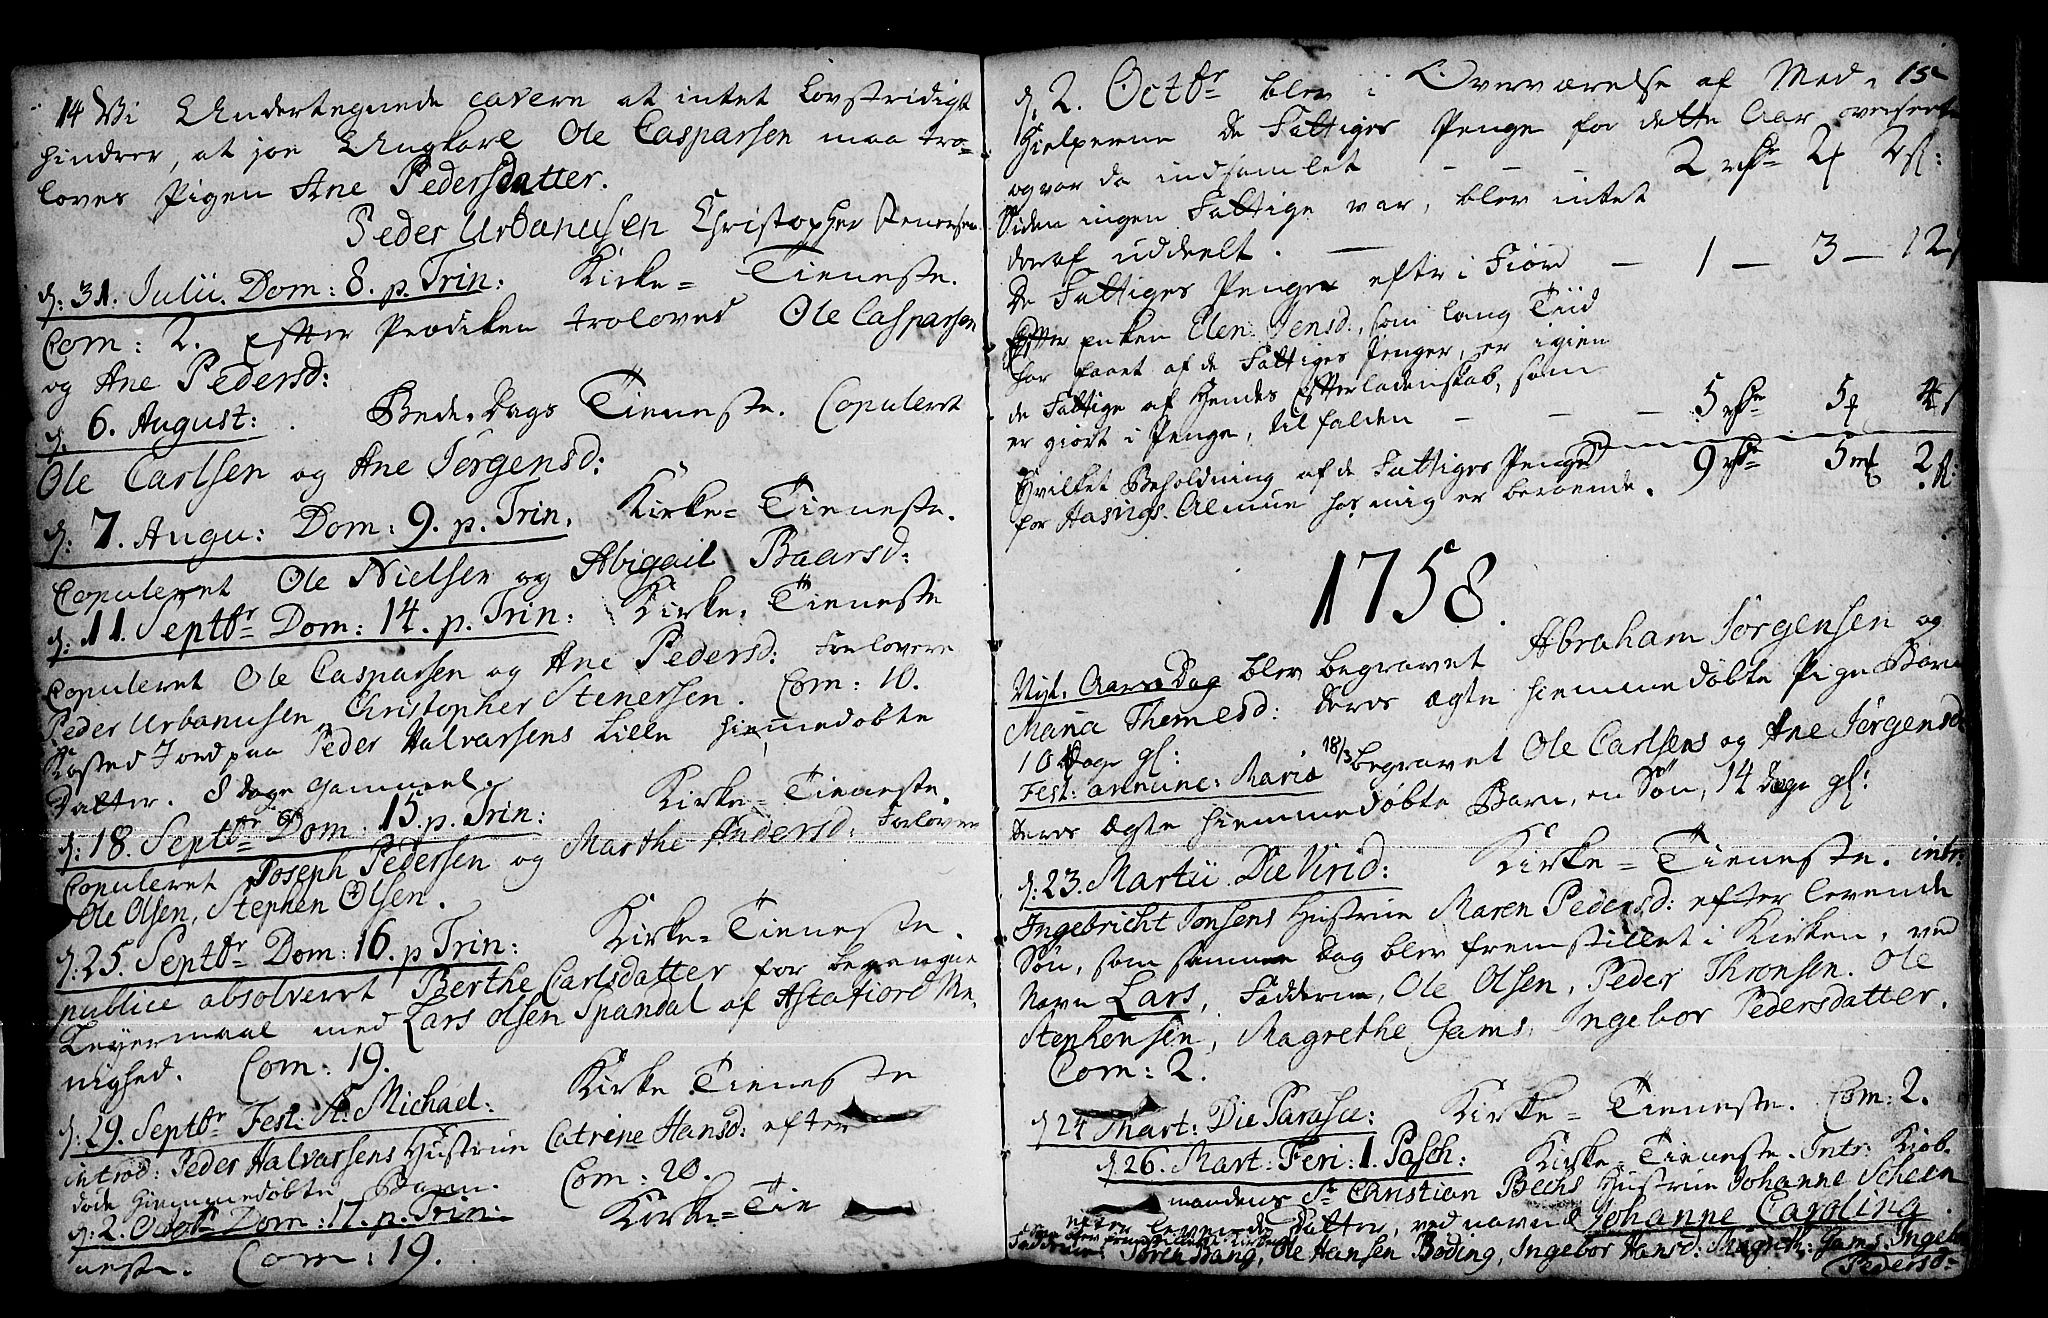 14 Vi Undertegnede cavere at intet Lovstridigt
hindrer, at jo Ungkarl Ole Casparsen maa tro-
loves Pigen Ane Pedersdatter.
Peder Urbanusen Christopher Stenersen
d: 31. Julii. Dom: 8. p. Trin: Kirke-Tieneste.
Com: 2. Efter Prædiken troloved Ole Casparsen
og Ane Pedersd:
d. 6. August: Bede-Dags Tieneste. Copuleret
Ole Carlsen og Ane Jørgensd:
d: 7. Augu: Dom: 9. p. Trin. Kirke-Tieneste.
Copuleret Ole Nielsen og Abigail Baarsd:
d: 11. Septbr Dom: 14. p. Trin: Kirke-Tieneste
Copuleret Ole Casparsen og Ane Pedersd: Forlovere
Peder Urbanusen, Christopher Stenersen. Com: 10.
Kasted Jord paa Peder Halvarsens Lille hiemmedøbte
Datter. 8 Dage Gammel.
d: 18. Septbr Dom: 15. p. Trin: Kirke-Tieneste.
Copuleret Joseph Pedersen og Marthe Andersd: Forlovere
Ole Olsen, Stephen Olsen.
d: 25. Septbr Dom: 16. p Trin: Kirke-Tieneste.
publice absolveret Berthe Carlsdatter for begangne
Leyermaal med Lars Olsen Spandal af Astafiord Me-
nighed. Com: 19.
d: 29. Septbr Fest: St. Michael: Kirke Tieneste
introd: Peder Halvarsens Hustrue Catrine Hansd: efter
døde hiemmedøbte Barn. Com: 20.
d: 2. Octbr Dom: 17. p. Trin: Kirke-Tie
neste. Com: 19.
d. 2. Octbr blev i Overværelse af Med- 15
hielperne de Fattiges Penge for dette Aar overseete
og var da indsamlet 2 rdr 2 2 s:
Siden ingen Fattige var, blev intet
deraf uddeelt.
De Fattiges Penge eftr i Fiord 1 3 12
Efter Enken Elen Jensd:, som lang Tiid
har faaet af de Fattiges Penger, er igien
de Fattige af Hendes Efterladenskab, som
er giort i Penge, tilfalden 5 rdr 5 4
Hvilket Beholdning af de Fattiges Penge 9 rdr 5 m 2 s:
for Aasnøs. Almue hos mig er beroende.
1758.
Nyt-Aars Dag blev begravet Abraham Jørgensen og
Mana Themesd: deres ægte hiemmedøbte Pige Barn
10 Dage gl:
Fest: annunc: Maria 18/3 begravet Ole Carlsens og Ane Jørgensd
deres ægte hiemmedøbte Barn, en Søn, 14 Dage gl:
d: 23. Martii Die Virid: Kirke-Tieneste. intr:
Ingebricht Jonsens Hustrue Maren Pedersd: efter levende
Søn, som samme Dag blev fremstillet i Kirken, ved
Navn Lars, Fadderne, Ole Olsen, Peder Thronsen. Ole
Stephensen, Magrethe Gams, Ingebor Pedersdatter.
Com: 2.
d 24 Mart: Die Parasc: Kirke-Tieneste. Com: 2.
d 26. Mart: Feri: 1. Pasch: Kirke-Tieneste. Intr: Kiøb-
mandens Sr Christian Bechs Hustrue Johanne Scheen
efter levende Datter, ved navn Johanne Carolina.
som blev fremstillet i Kirken
Fadderne: Søren Bang, Ole Hansen Bøding, Ingebor Hansd: Magreth: Gams: Ingebor
Pedersd-